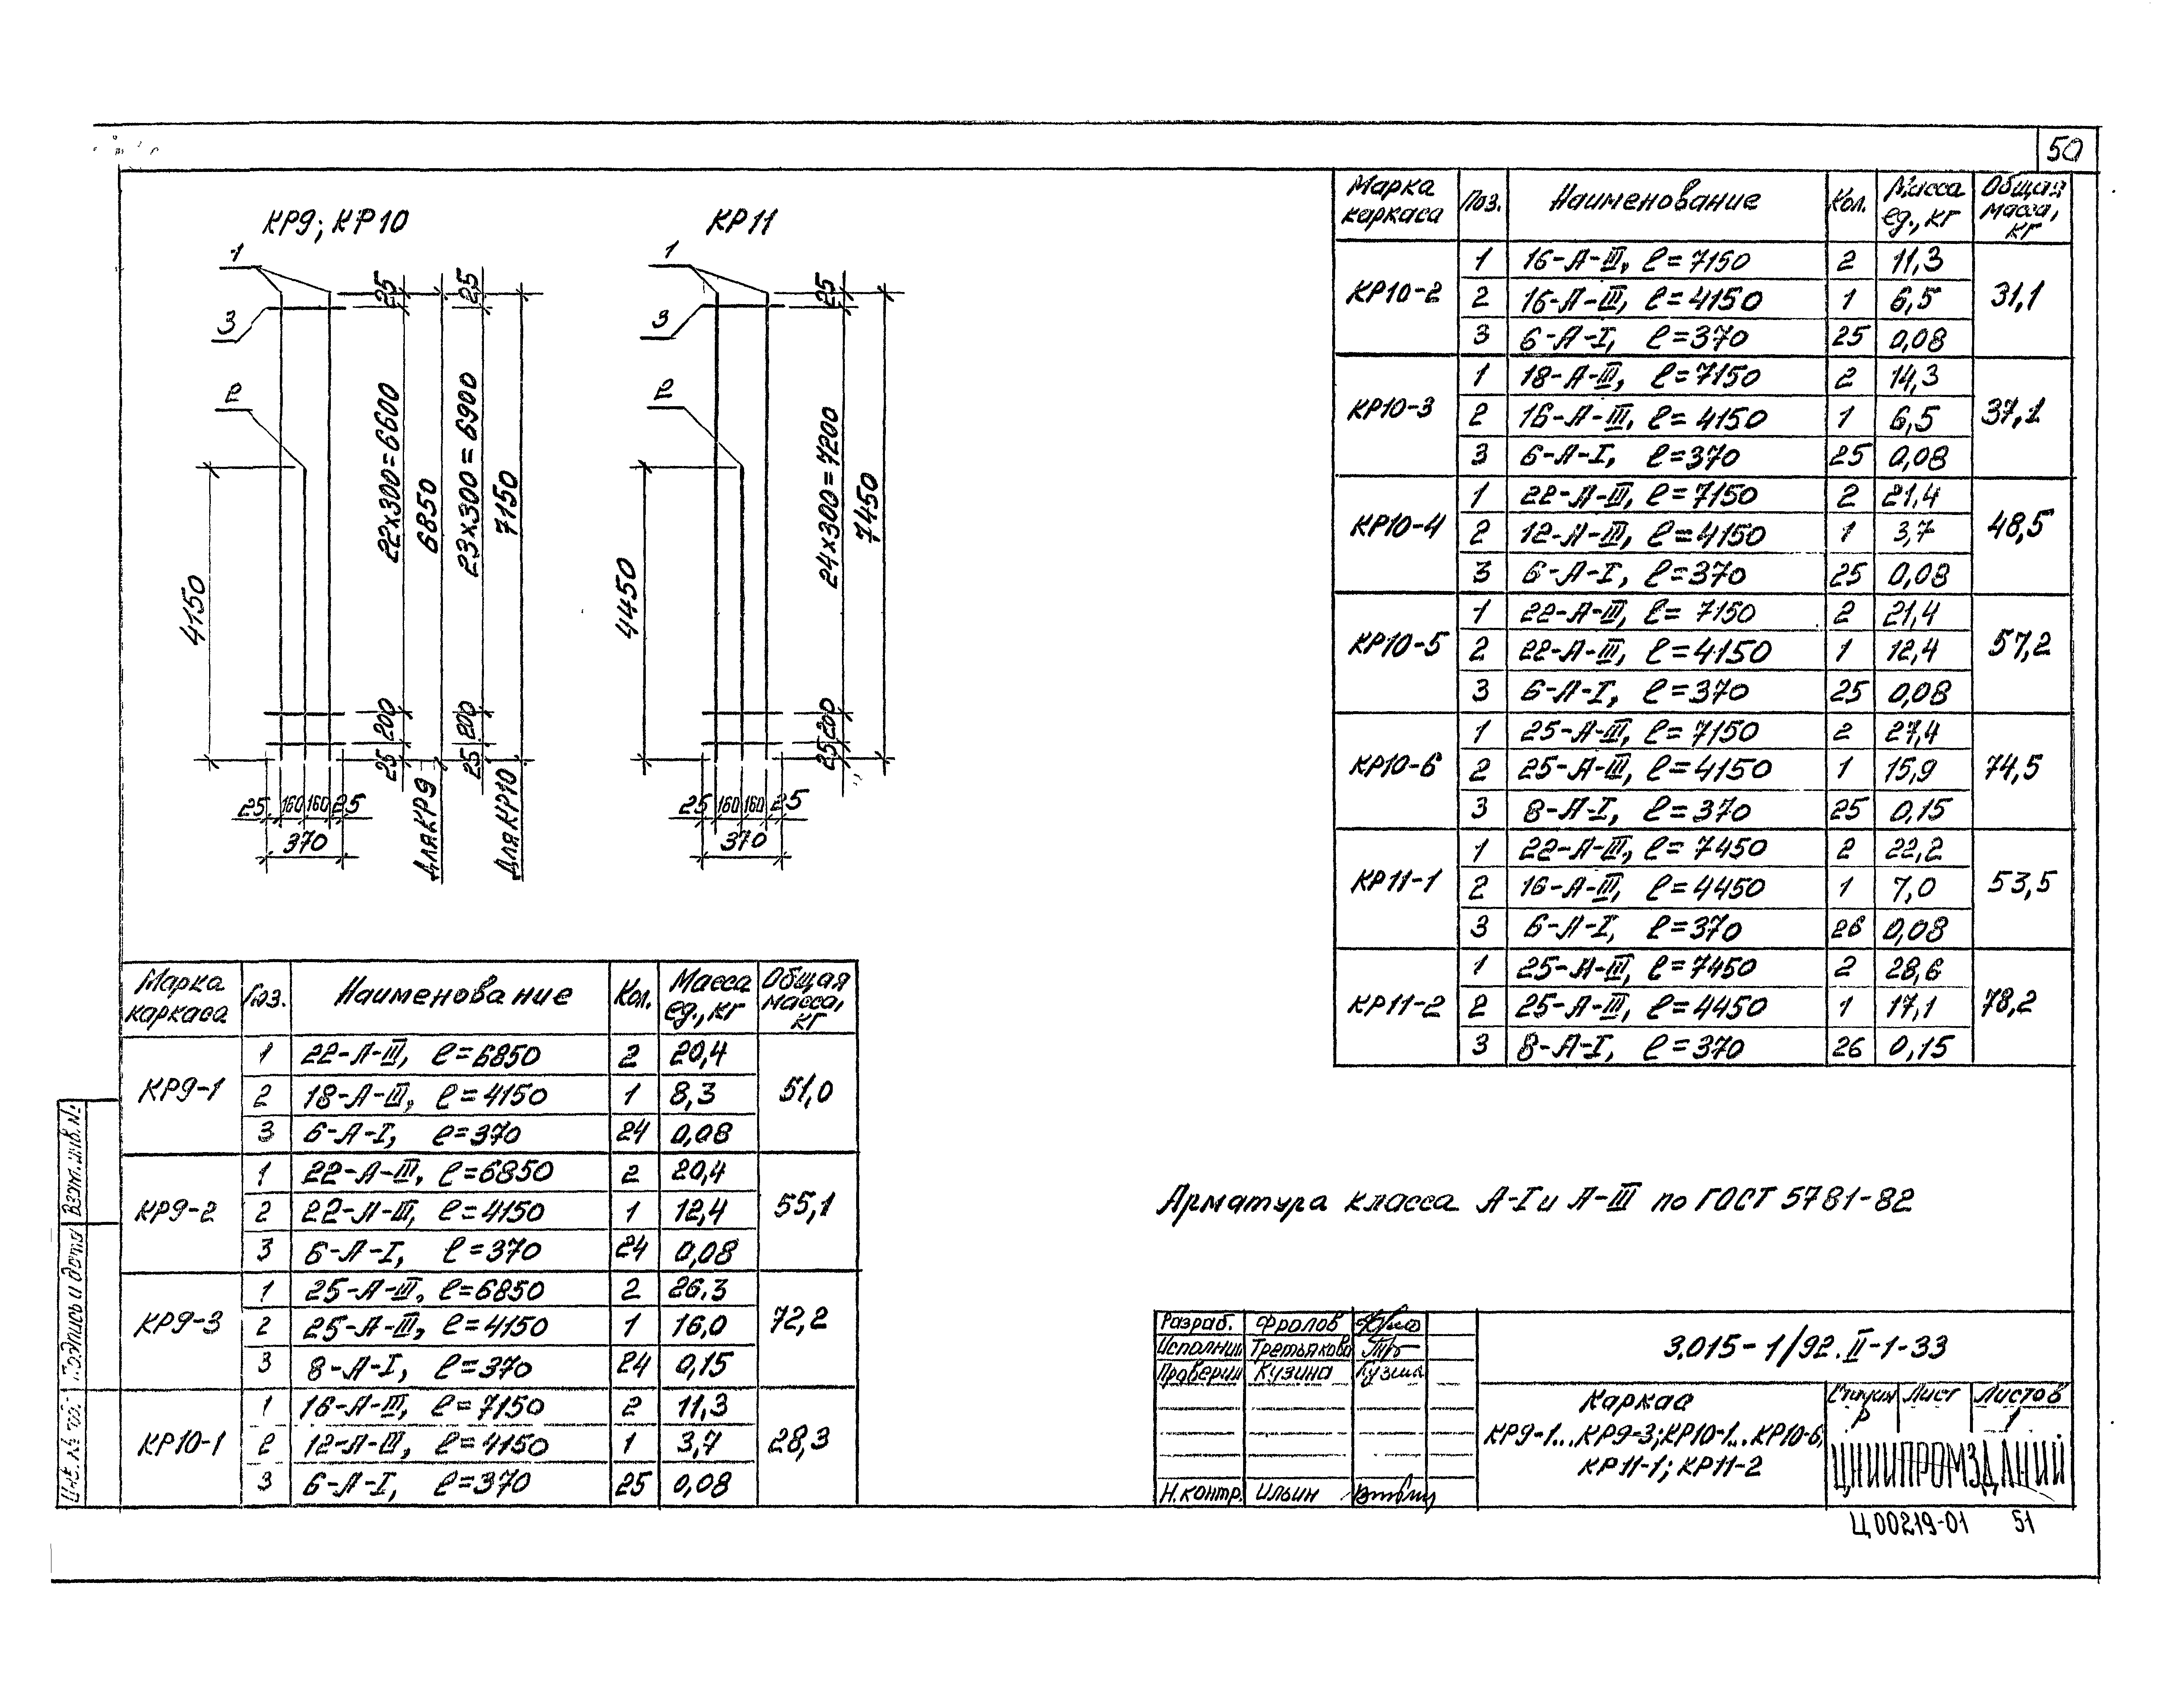 50
КР9; КР10
1
3
2
4150
25
22х300=6600
200
25
6850
25
23х300=6900
200
25
7150
25 160 160 25
370
для КР9
для КР10
КР11
1
3
2
4450
25
24х300=7200
200
25
7450
25 160 160 25
370
Марка каркаса Поз. Наименование Кол. Масса ед., кг Общая масса, кг
КР9-1 51,0
1 22-А-III, ℓ=6850 2 20,4
2 18-А-III, ℓ=4150 1 8,3
3 6-А-I, ℓ=370 24 0,08
КР9-2 55,1
1 22-А-III, ℓ=6850 2 20,4
2 22-А-III, ℓ=4150 1 12,4
3 6-А-I, ℓ=370 24 0,08
КР9-3 72,2
1 25-А-III, ℓ=6850 2 26,3
2 25-А-III, ℓ=4150 1 16,0
3 8-А-I, ℓ=370 24 0,15
КР10-1 28,3
1 16-А-III, ℓ=7150 2 11,3
2 12-А-III, ℓ=4150 1 3,7
3 6-А-I, ℓ=370 25 0,08
Марка каркаса Поз. Наименование Кол. Масса ед., кг Общая масса, кг
КР10-2 31,1
1 16-А-III, ℓ=7150 2 11,3
2 16-А-III, ℓ=4150 1 6,5
3 6-А-I, ℓ=370 25 0,08
КР10-3 37,1
1 18-А-III, ℓ=7150 2 14,3
2 16-А-III, ℓ=4150 1 6,5
3 6-А-I, ℓ=370 25 0,08
КР10-4 48,5
1 22-А-III, ℓ=7150 2 21,4
2 12-А-III, ℓ=4150 1 3,7
3 6-А-I, ℓ=370 25 0,08
КР10-5 57,2
1 22-А-III, ℓ=7150 2 21,4
2 22-А-III, ℓ=4150 1 12,4
3 6-А-I, ℓ=370 25 0,08
КР10-6 74,5
1 25-А-III, ℓ=7150 2 27,4
2 25-А-III, ℓ=4150 1 15,9
3 8-А-I, ℓ=370 25 0,15
КР11-1 53,5
1 22-А-III, ℓ=7450 2 22,2
2 16-А-III, ℓ=4450 1 7,0
3 6-А-I, ℓ=370 26 0,08
КР11-2 78,2
1 25-А-III, ℓ=7450 2 28,6
2 25-А-III, ℓ=4450 1 17,1
3 8-А-I, ℓ=370 26 0,15
Арматура класса А-I и А-III по ГОСТ 5781-82
Разраб. Фролов
Исполнил Третьякова
Проверил Кузина
Н.контр. Ильин
3.015-1/92.II-1-33
Каркас
КР9-1...КР9-3; КР10-1...КР10-6;
КР11-1; КР11-2
Стадия Лист Листов
Р 1
ЦНИИПРОМЗДАНИЙ
Ц00219-01 51
Инв. № под. Подпись и дата Взам. инв. №